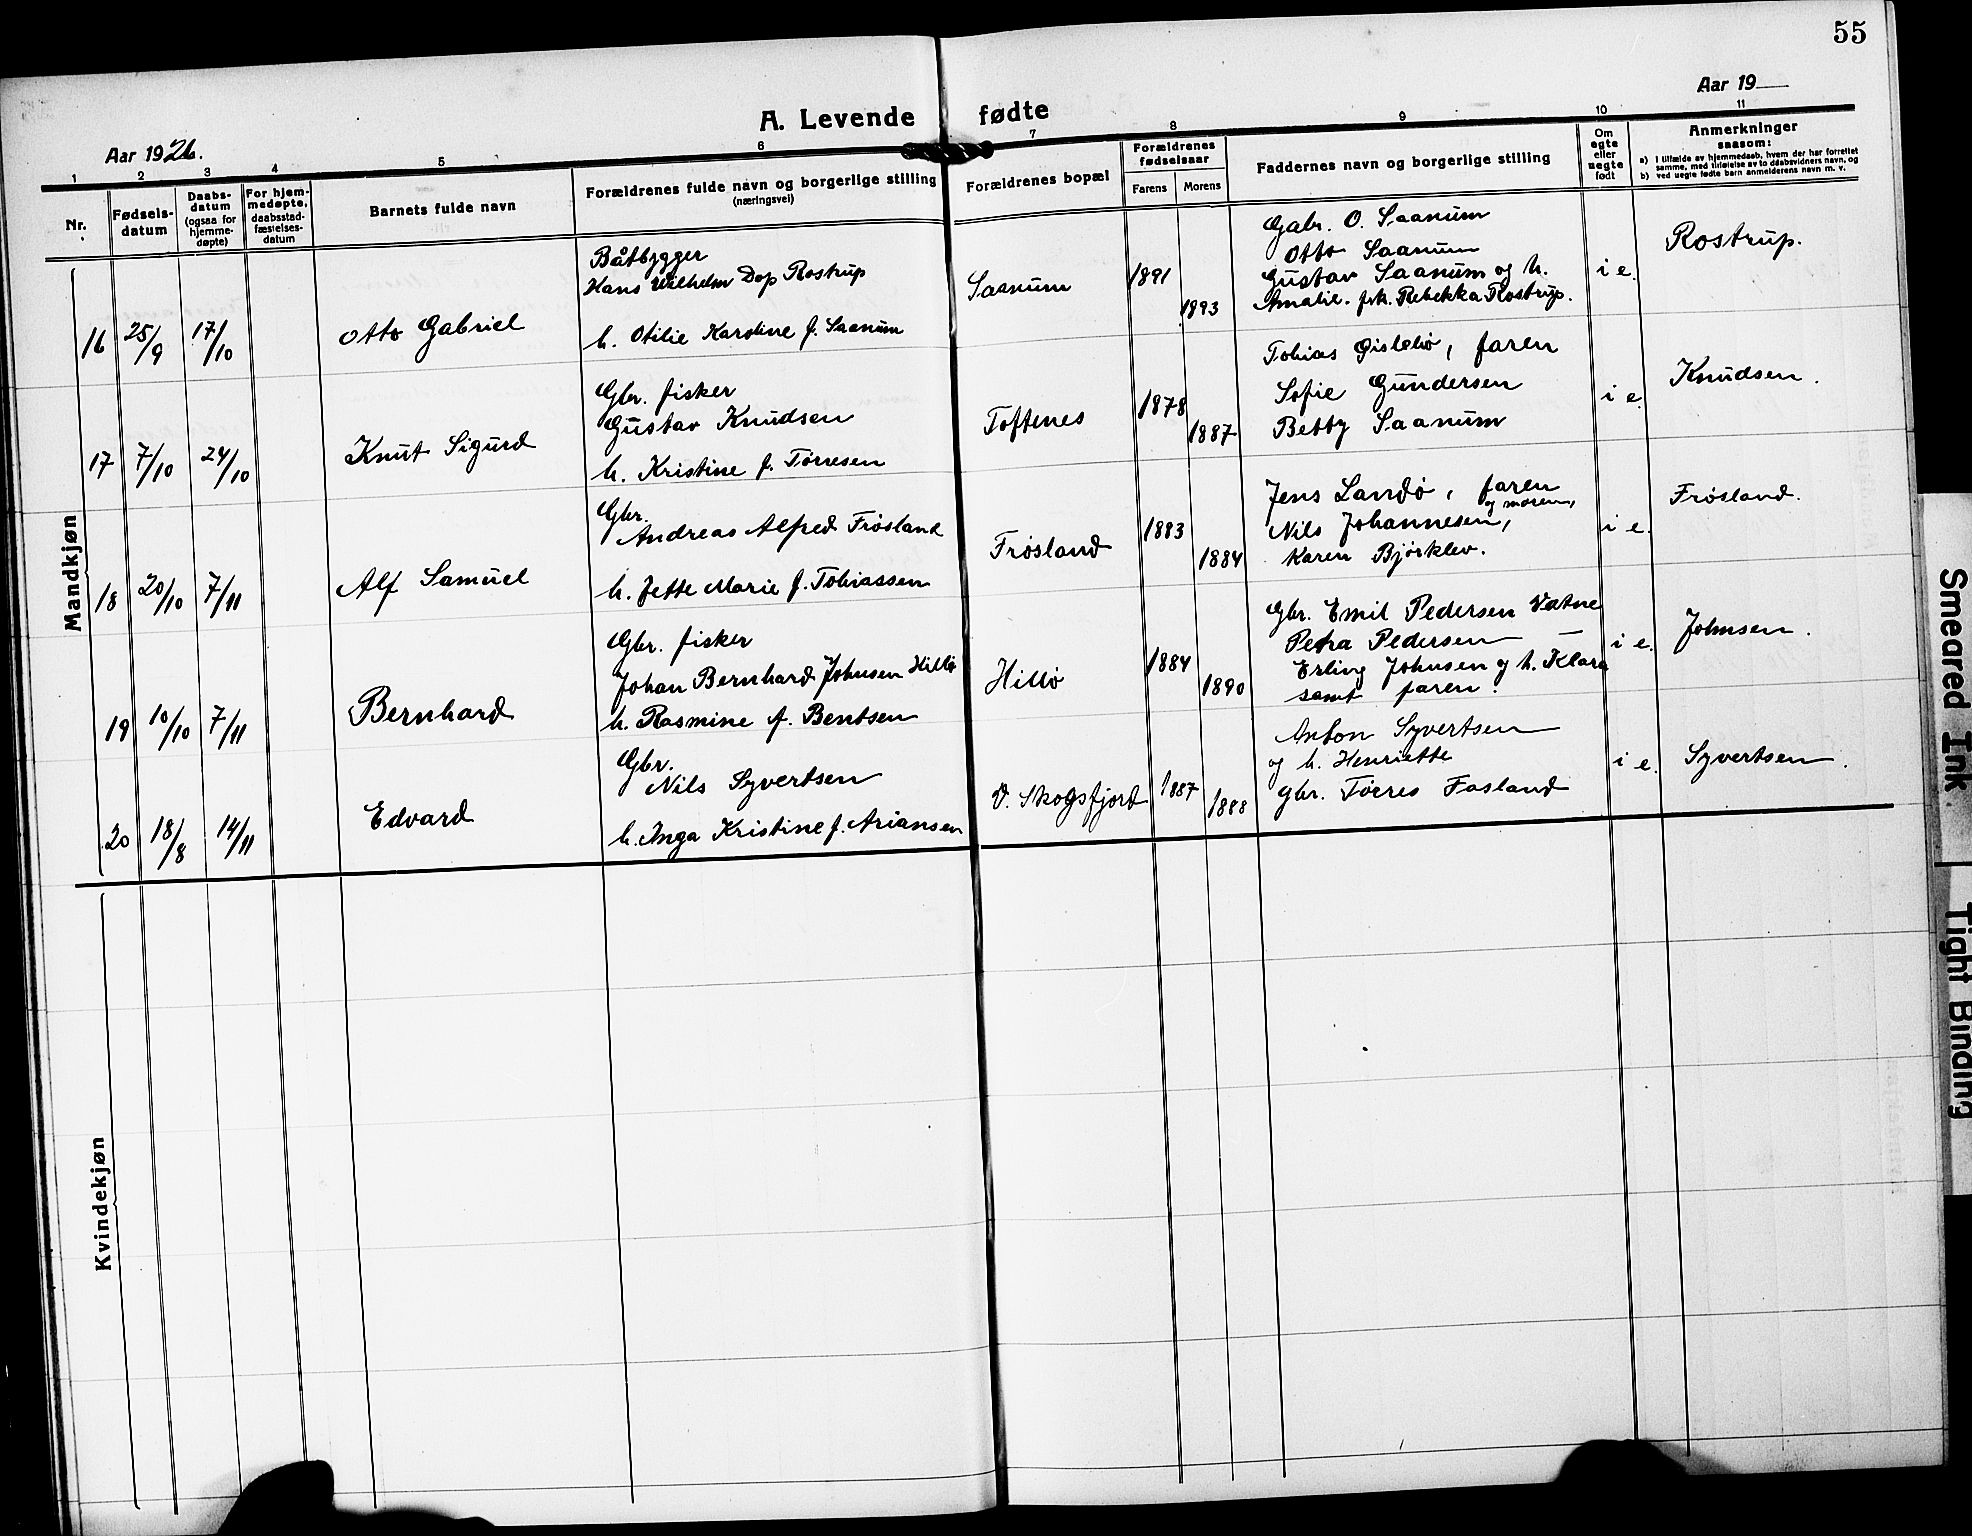 55
Aar 1926.
A. Levende fødte
Aar 19
1 2 3 4 5 6 7 8 9 10 11
Nr.
Fødsels-
datum
Daabs-
datum
(ogsaa for
hjemme-
døpte)
For hjem-
medøpte,
daabsstad-
fæstelses-
datum
Barnets fulde navn
Forældrenes fulde navn og borgerlige stilling
(næringsvei)
Forældrenes bopæl
Forældrenes
fødselsaar
Farens Morens
Faddernes navn og borgerlige stilling
Om
egte
eller
uegte
født
Anmerkninger
saasom:
a) I tilfælde av hjemmedaab, hvem der har forrettet
samme, med tilføielse av to daabsvidners navn, og
b) ved uegte fødte barn anmelderens navn m. v.
Mandkjøn
16 25/9 17/10
Otto Gabriel
Båtbygger
Hans Wilhelm Dop Rostrup
h. Otilie Karoline f. Saanum
Saanum
1891
1893
Gabr. O. Saanum
Otto Saanum
Gustav Saanum og h.
Amalie. frk. Rebekka Rostrup.
i e.
Rostrup.
17 7/10 24/10
Knut Sigurd
Gbr. fisker
Gustav Knudsen
h. Kristine f. Torresen
Toftenes
1878
1887
Tobias Gislebø, faren
Sofie Gundersen
Betty Saanum
i e.
Knudsen.
18 20/10 7/11
Alf Samuel
Gbr.
Andreas Alfred Frøsland
h. Jette Marie f. Tobiassen
Frøsland
1883
1884
Jens Landø, faren
og moren,
Nils Johannesen,
Karen Bjørklev.
i e.
Frøsland.
19 10/10 7/11
Bernhard
Gbr. fisker
Johan Bernhard Johnsen Hillø
h. Rasmine f. Bentsen
Hillø
1884
1890
Gbr. Emil Pedersen Vatne
Petra Pedersen —
Erling Johnsen og h. Klara
samt faren.
i e.
Johnsen.
20 18/8 14/11
Edvard
Gbr.
Nils Syvertsen
h. Inga Kristine f. Ariansen
V. Skogsfjord
1887
1888
Anton Syvertsen
og h. Henriette
gbr. Tørres Fasland
i e.
Syvertsen.
Kvindekjøn
Smeared Ink
Tight Binding